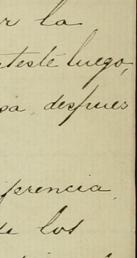 r la
testé luego,
sa, despues
ferencia
e los